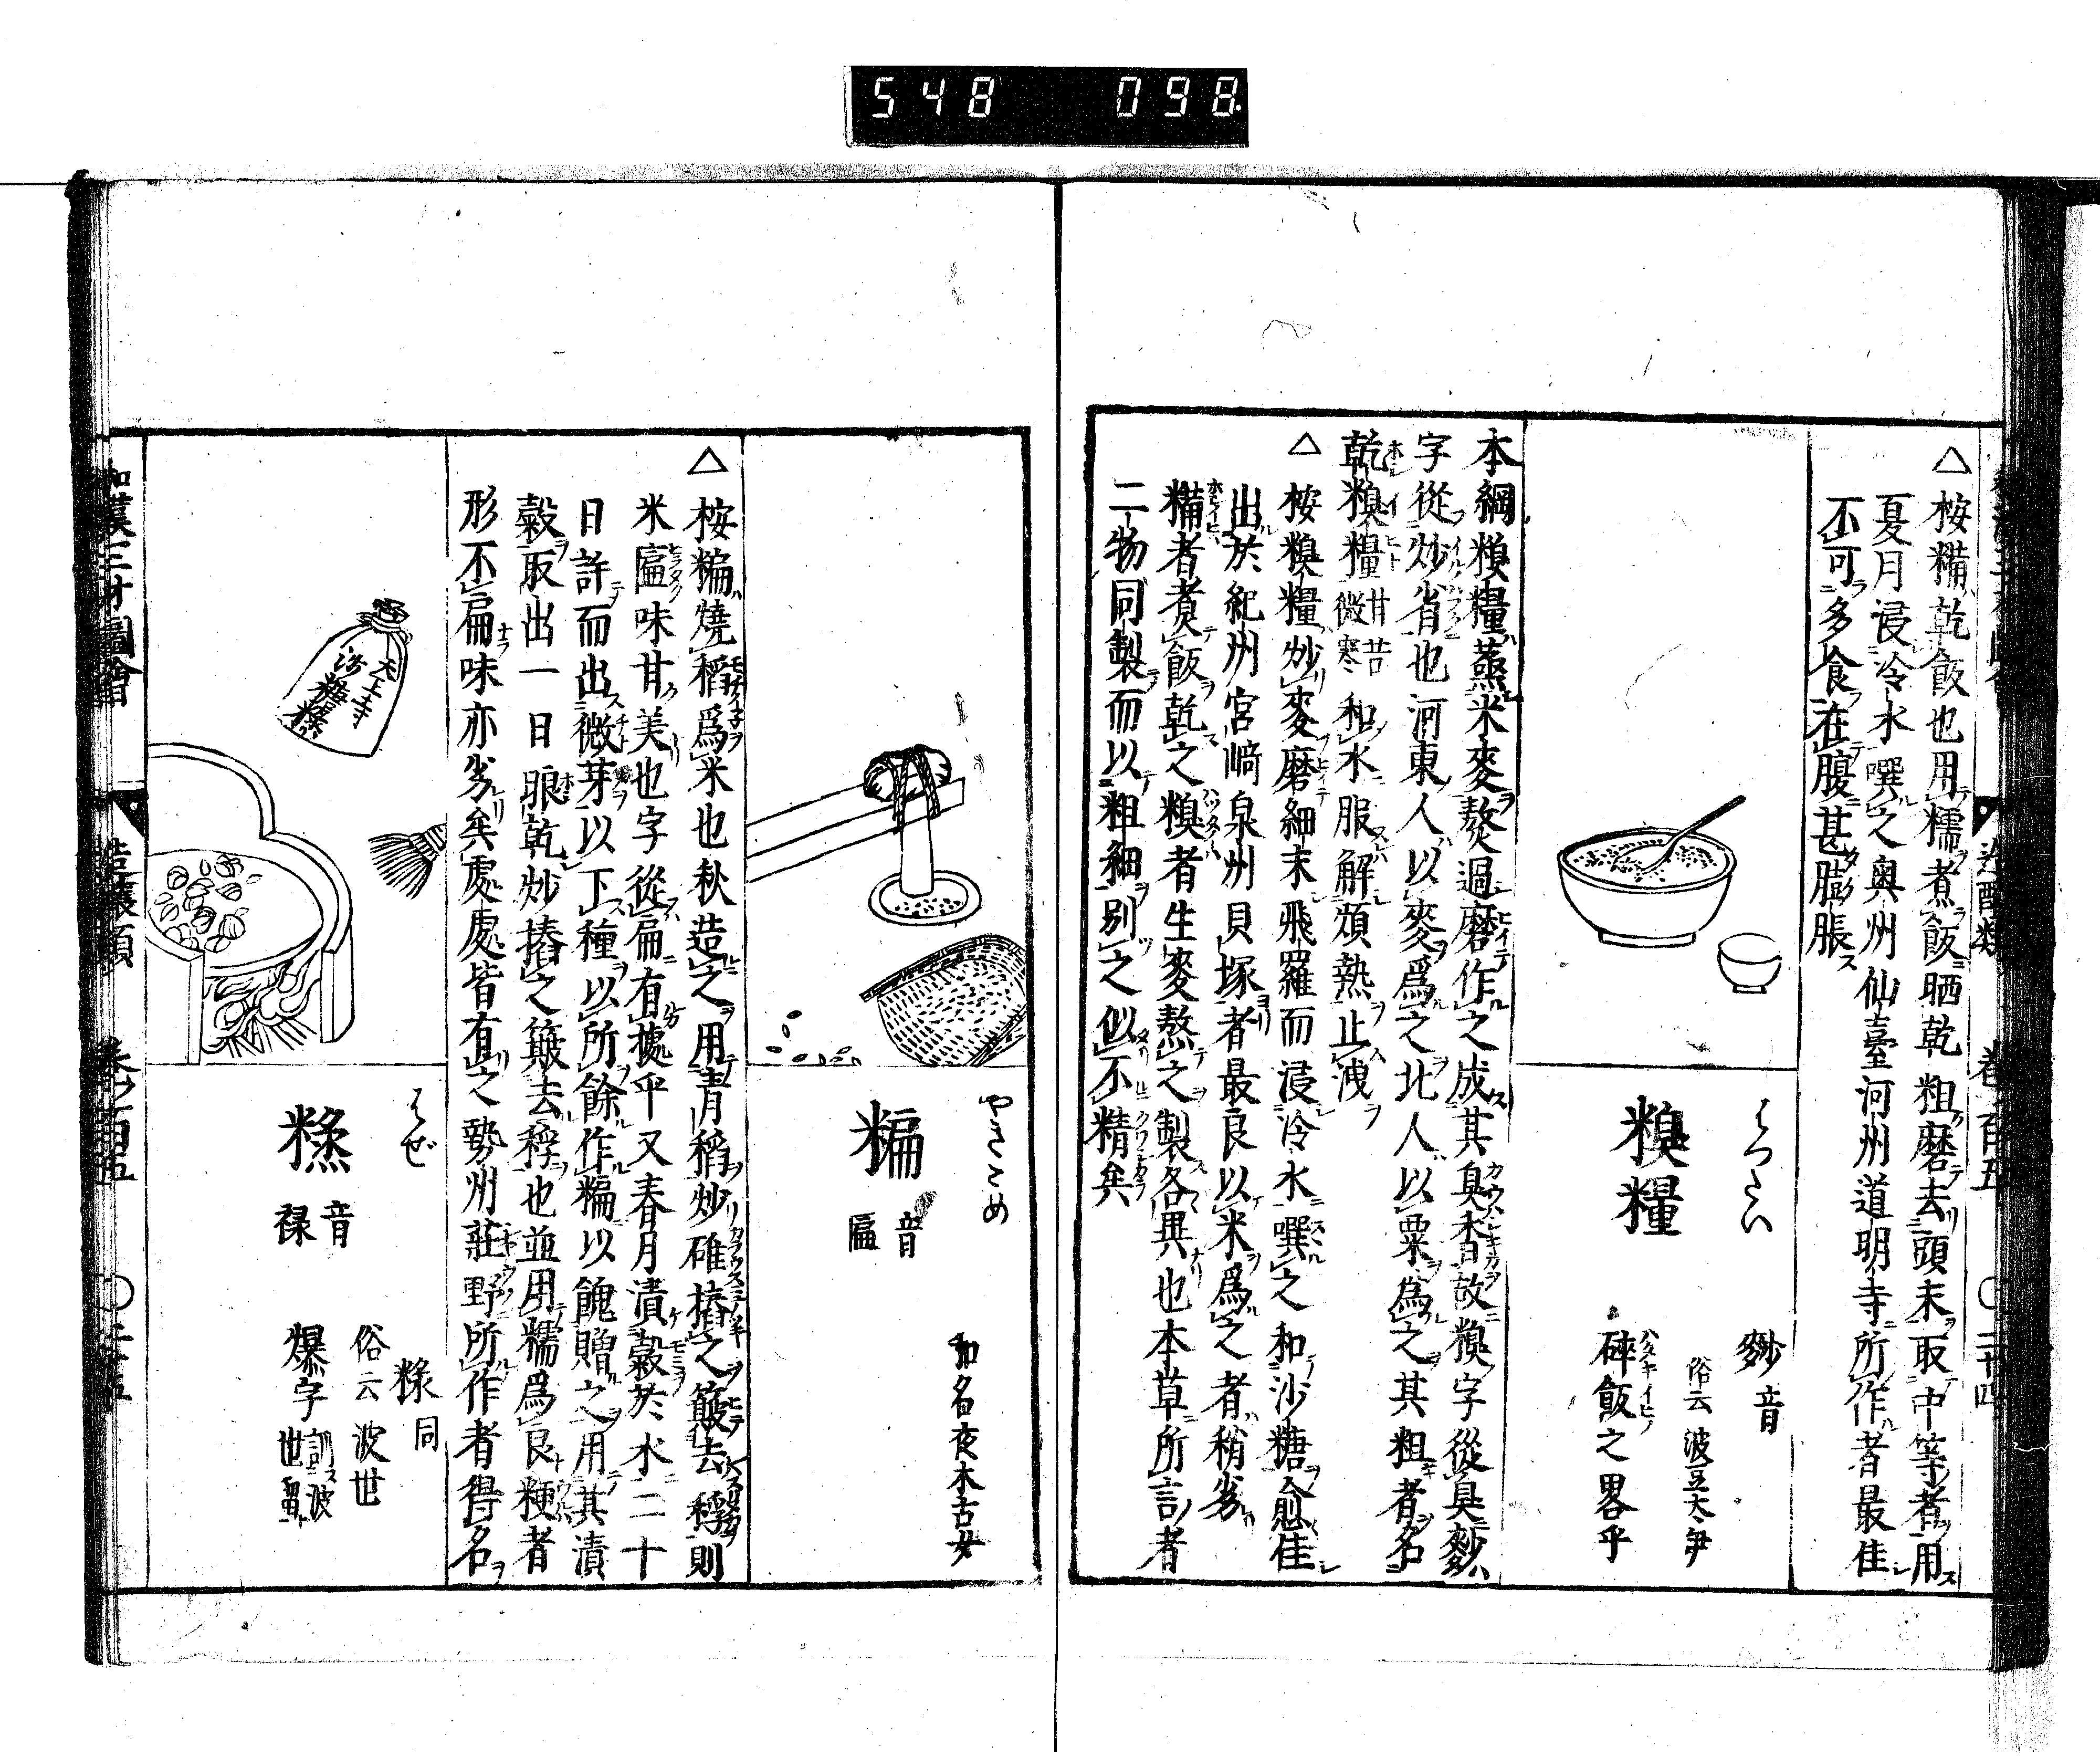 548 098
△按糒乾飯也用糯煮飯晒乾粗磨去頭末取中等者用
夏月浸冷水饌之奥州仙臺河州道明寺所作者最佳
不可多食在腹甚膨脹
はつたい
糗糧
麨音
俗云波豆太伊
碎飯之畧乎
本綱糗糧蒸米麥熬過磨作之成其臭香故糗字從臭麨
字從炒省也河東人以麥爲之北人以粟爲之其粗者名
乾糗糧甘苦微寒和水服解煩熱止洩
△按糗糧炒麥磨細末飛羅而浸冷水饌之和沙糖愈佳
出於紀州宮﨑泉州貝塚者最良以米爲之者稍劣
糒者煮飯乾之糗者生麥熬之製各異也本草所言者
二物同製而以粗細別之似不精矣
やきこめ
糄
音匾
和名夜木古女
△按糄燒稻爲米也秋造之用青稻炒碓擣之簸去稃則
米匾味甘美也字從扁有據乎又春月漬穀於水二十
日許而出微芽以下種以所餘作糄以餽贈之用其漬
穀取出一日眼乾炒擣之簸去稃也並用糯爲良粳者
形不扁味亦劣矣處處皆有之勢州莊野所作者得名
天上寺
沙糖糕
はぜ
音祿
糅同
俗云波世
爆字訓波世留
和漢三才圖會 造釀類 卷ノ百五 〇二十五